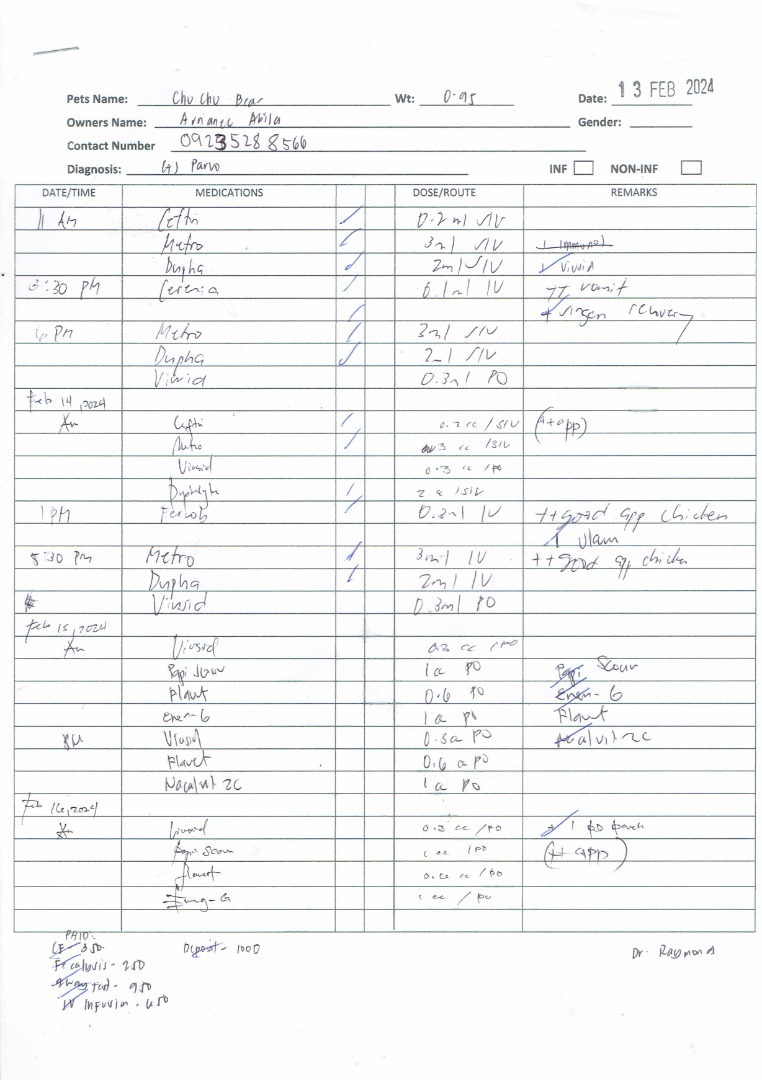 Pets Name: Chu Chu Bear Wt: 0.95 Date: 13 FEB 2024
Owners Name: Abila Gender:
Contact Number 09235288566
Diagnosis: (+) Parvo INF NON-INF
DATE/TIME MEDICATIONS DOSE/ROUTE REMARKS
11 AM Ceftri 0.2ml SIV
Metro 3ml SIV 1 Immunol
Dupha 2ml SIV Virvid
3:30 PM Cerenia 0.1ml IV ++ vomit
+ syrgen recovery
6 PM Metro 3ml SIV
Dupha 2ml SIV
Virvid 0.3ml PO
Feb 14, 2024
Am Ceftri 0.2 cc / SIV (++app)
Metro 3 cc /SIV
Virsid 0.3 cc /po
Duphalyte 2 cc /SIV
1 PM 0.3ml IV ++good app chicken
ulam
5:30 PM Metro 3ml IV ++good app chicken
Dupha 2ml IV
Virsid 0.3ml PO
Feb 15, 2024
Am Virsid 0.3 cc /PO
Papi Scour 1cc PO Papi Scour
Plavet 0.6 PO Ener-G
Ener-G 1cc PO Plavet
PM Virsid 0.3cc PO Nacalvit 2C
Plavet 0.6 cc PO
Nacalvit 2C 1cc PO
Feb 16, 2024
Am Virsid 0.3 cc /PO + 1 pouch
Papi Scour 1 cc /PO (++ app)
Plavet cc /PO
Ener-G 1 cc / PO
PAID:
CF - 350 Deposit - 1000 Dr. Raymond
Fecalysis - 250
4way test - 950
IV Infusion - 650